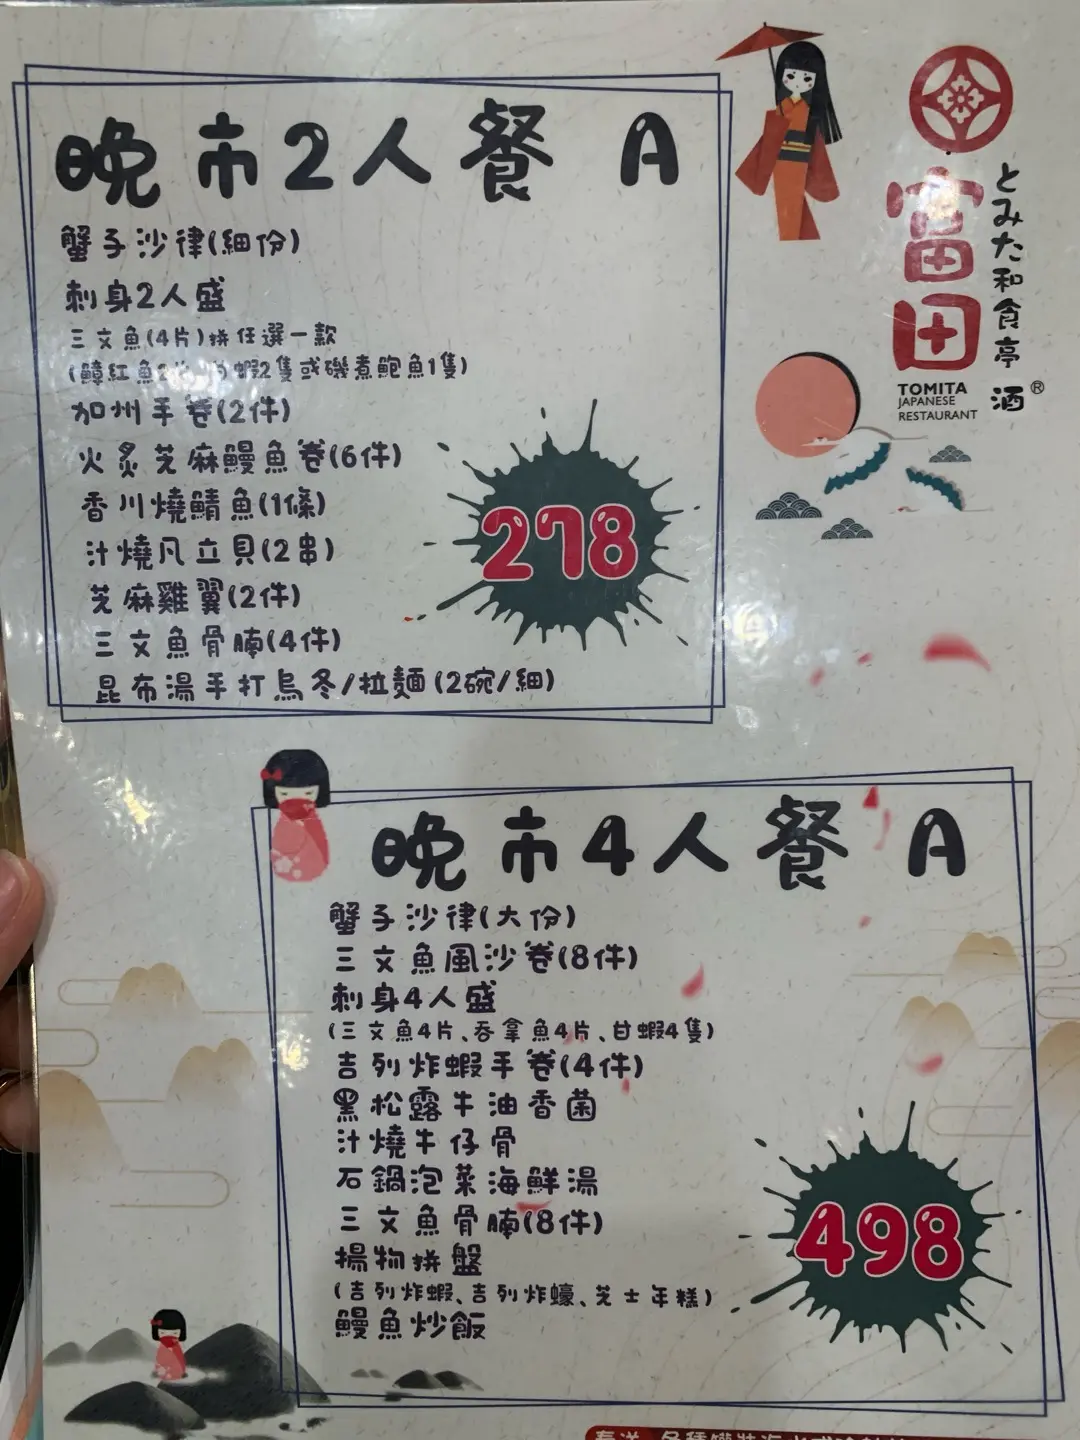 晚市2人餐 A
蟹子沙律(細份)
刺身2人盛
三文魚(4片)拼任選一款
(鱆紅魚2 蝦2隻或磯煮鮑魚1隻)
加州手卷(2件)
火炙芝麻鰻魚卷(6件)
香川燒鯖魚(1條)
汁燒凡立貝(2串)
芝麻雞翼(2件)
三文魚骨腩(4件)
昆布湯手打烏冬/拉麵(2碗/細)
278
富田
とみた和食亭 酒®
TOMITA
JAPANESE
RESTAURANT
晚市4人餐 A
蟹子沙律(大份)
三文魚風沙卷(8件)
刺身4人盛
(三文魚4片、吞拿魚4片、甘蝦4隻)
吉列炸蝦手卷(4件)
黑松露牛油香菌
汁燒牛仔骨
石鍋泡菜海鮮湯
三文魚骨腩(8件)
揚物拼盤
(吉列炸蝦、吉列炸蠔、芝士年糕)
鰻魚炒飯
498